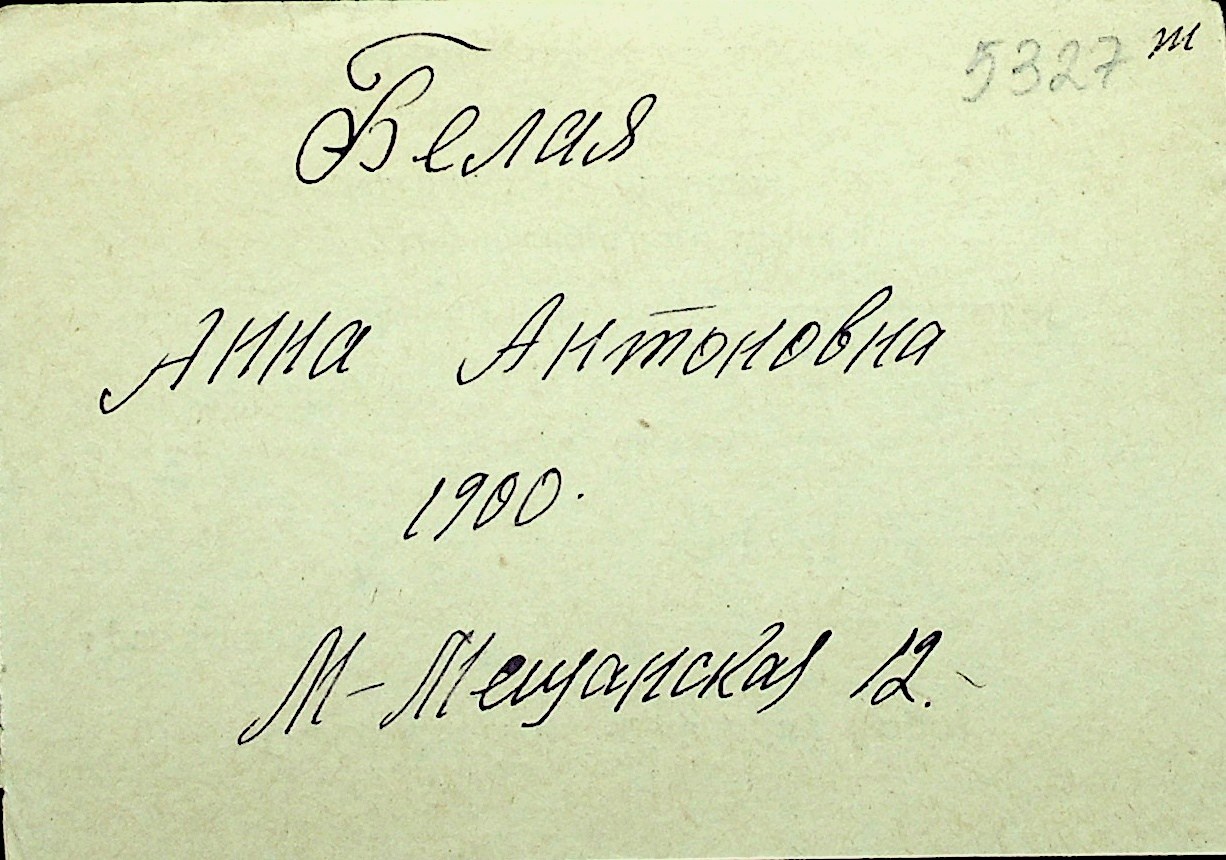 5327 т
Белая
Анна Антоновна
1900.
М-Мещанская 12.